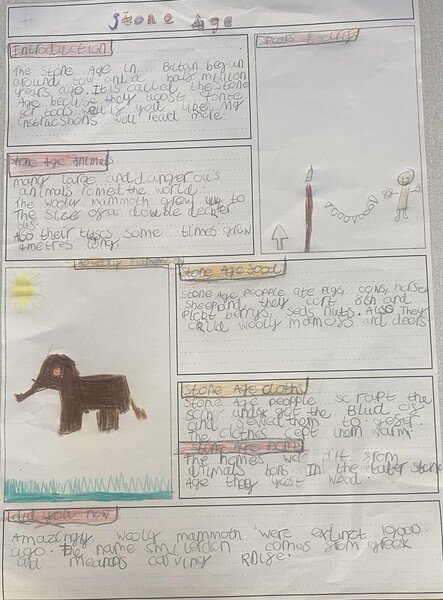 Stone Age
Introduction
The Stone Age in Britan began
around tow and a half million
years ago. It is called the Stone
Age becluse they uest Stone
for tools
instrucshons well read more.
Stone Age Animals
many large and dangerous
animals romed the world.
The wooly mammoth grew up to
The size of an double decker
bus.
Also their tuscs some times grew
4metres long.
Stone Age food
Stone Age peopple ate pigs, cows, horses
sheep and they cort fish and
pickt berrys, seds nuts. Also They
wooly mamoss and deers
Stone Age cloths
Stone Age peopple scrapt the
scin and got the Blud of
and sewed them to geser.
The clothes cept them warm.
Stone Age homes
The homes wer bilt from
animals bons. In the later stone
Age they yost wood.
Did you now
Amazingy wooly mammoth were extinct 10000
ago. the name comes from greek
and means carving